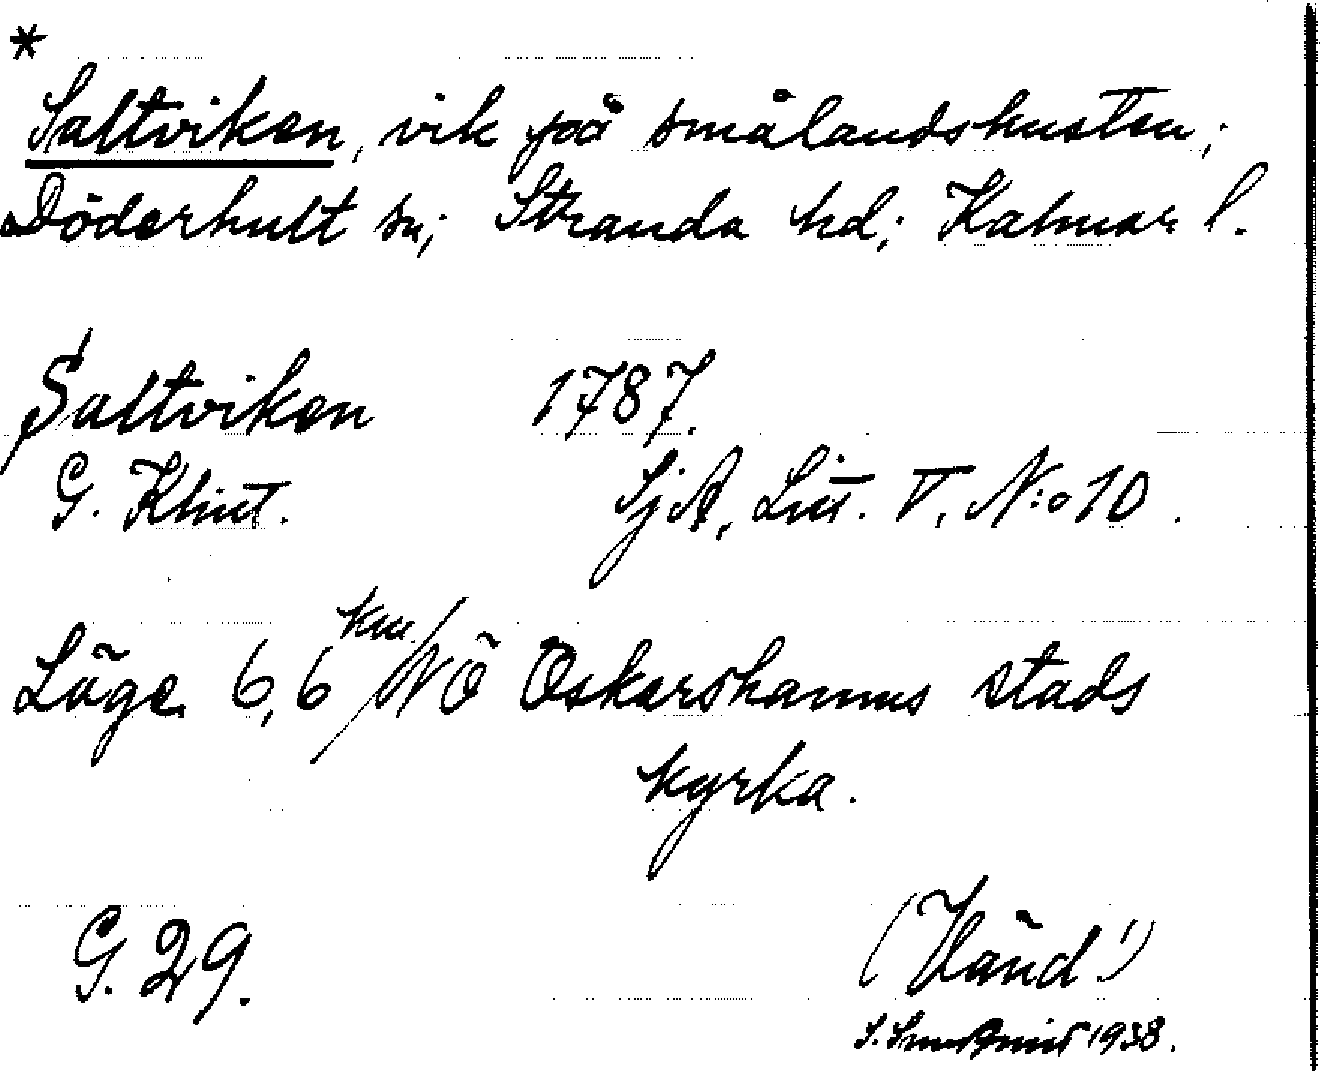 *
Saltviken, vik på smålandskusten;
Döderhult sn; Stranda hd; Kalmar l.
Saltviken 1787.
G. Klint. SjA, Litt. V, N:o 10.
Läge 6,6 km NÖ Oskarshamns stads
kyrka.
G. 29. (Vänd!)
1938.